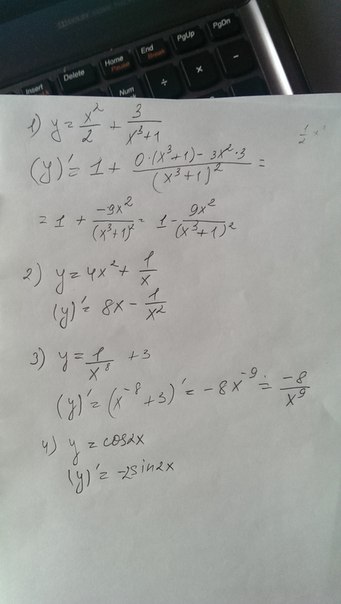 Insert
Delete
Home
Pause
End
Break
PgUp
PgDn
Num
÷
×
-
1) y = x²/2 + 3/(x³+1)
1/2 x
(y)' = 1 + (0·(x³+1) - 3x²·3)/(x³+1)² =
= 1 + -9x²/(x³+1)² = 1 - 9x²/(x³+1)²
2) y = 4x² + 1/x
(y)' = 8x - 1/x²
3) y = 1/x⁸ + 3
(y)' = (x⁻⁸ + 3)' = -8x⁻⁹ = -8/x⁹
4) y = cos2x
(y)' = -2sin2x